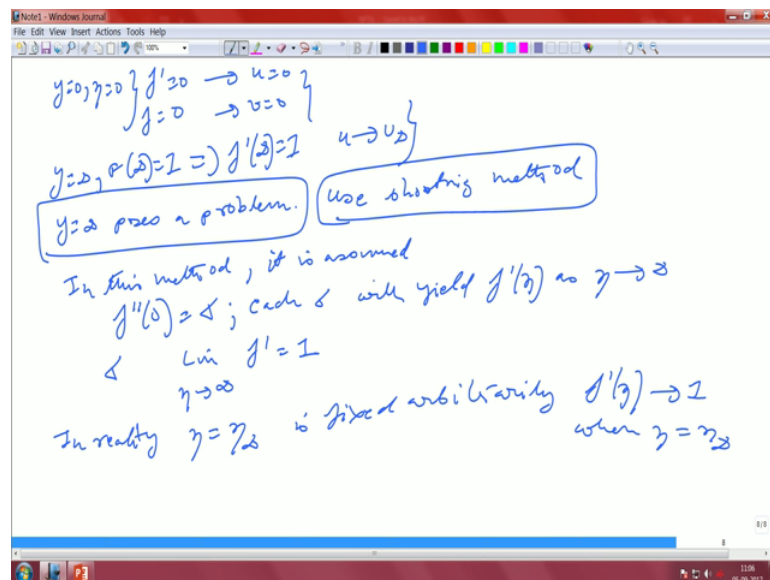 Note1 - Windows Journal
File Edit View Insert Actions Tools Help
100%
y=0, η=0 } f'=0 → u=0 }
f=0 → v=0
y=∞, F(∞)=1 => f'(∞)=1 u→U∞ }
y=∞ poses a problem. use shooting method
In this method, it is assumed
f''(0)=α; each α will yield f'(η) as η→∞
α Lim f'=1
η→∞
In reality η=η∞ is fixed arbitrarily f'(η)→1
when η=η∞
0/0
8
11:06